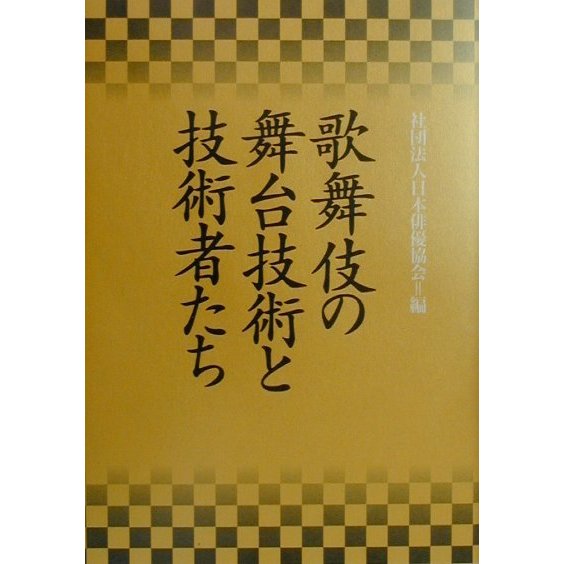 社団法人日本俳優協会=編
歌舞伎の
舞台技術と
技術者たち